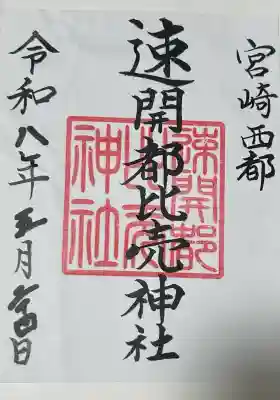 宮崎西都
速開都比売神社
令和八年五月吉日
速開都
比売
神社